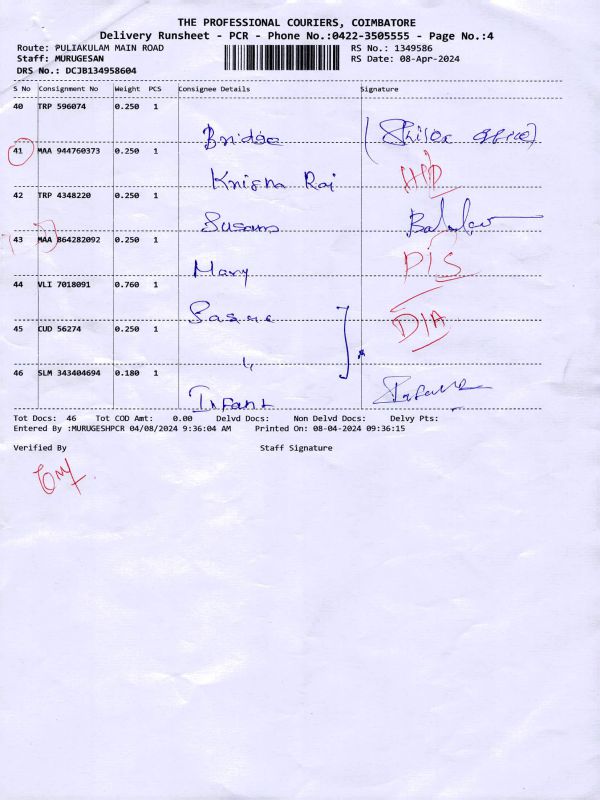 THE PROFESSIONAL COURIERS, COIMBATORE
Delivery Runsheet - PCR - Phone No.:0422-3505555 - Page No.:4
Route: PULIAKULAM MAIN ROAD RS No.: 1349586
Staff: MURUGESAN RS Date: 08-Apr-2024
DRS No.: DCJB134958604
S No Consignment No Weight PCS Consignee Details Signature
40 TRP 596074 0.250 1
Bridge
41 MAA 944760373 0.250 1
Krisha Raj
42 TRP 4348220 0.250 1
Susan
43 MAA 864282092 0.250 1
Mary D/S
44 VLI 7018091 0.760 1
45 CUD 56274 0.250 1 D/A
46 SLM 343404694 0.180 1
Infant
Tot Docs: 46 Tot COD Amt: 0.00 Delvd Docs: Non Delvd Docs: Delvy Pts:
Entered By :MURUGESHPCR 04/08/2024 9:36:04 AM Printed On: 08-04-2024 09:36:15
Verified By Staff Signature